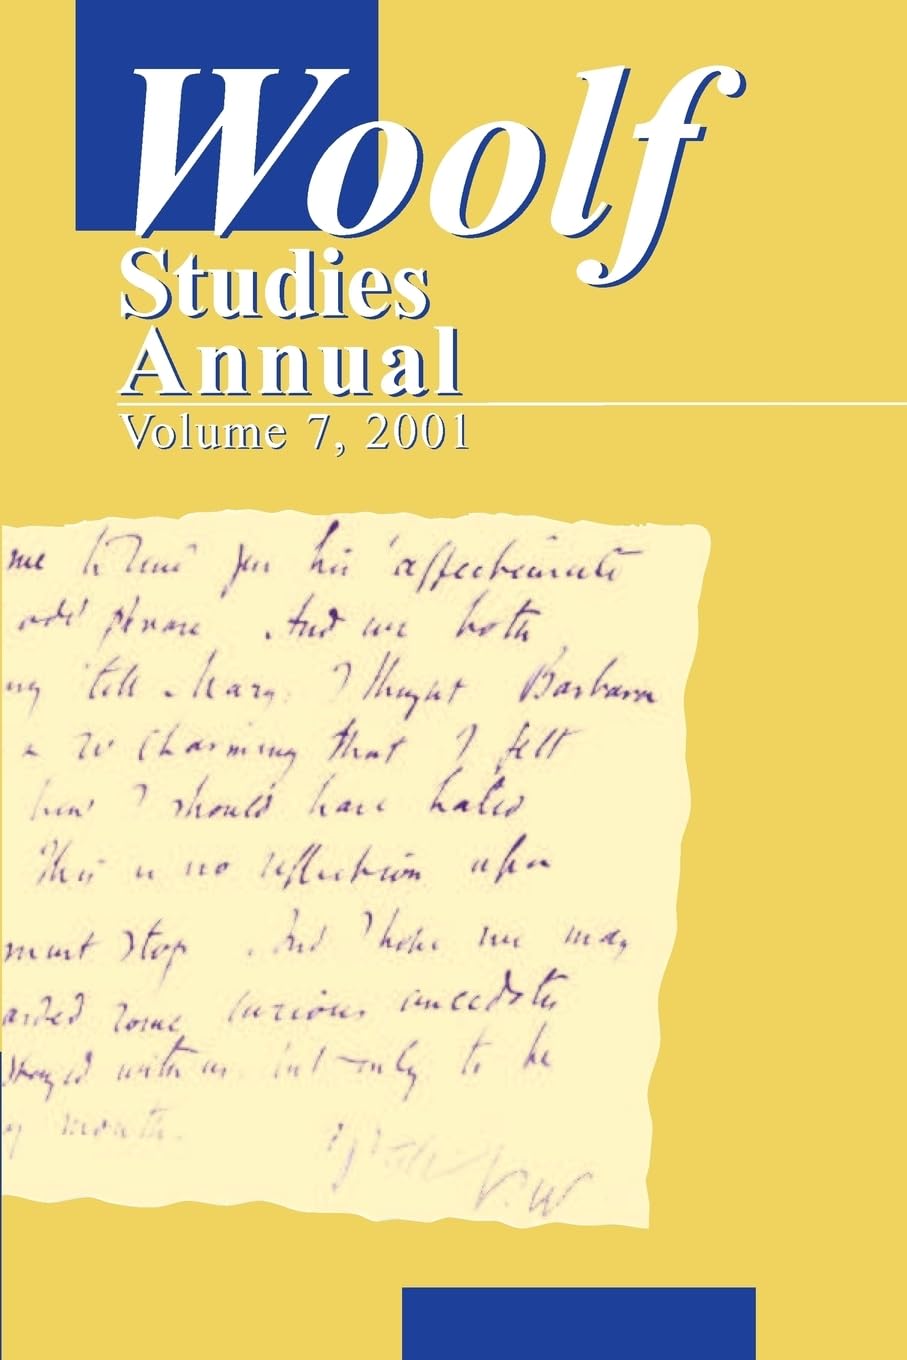 Woolf
Studies
Annual
Volume 7, 2001
me to send you his affectionate
odd phrase. And we both
ng tell Mary. I thought Barbara
so charming that I felt
how I should have hated
This is no reflection upon
must stop. And I hope we may
some curious anecdotes
stayed with us but only to be
my mouth.
V.W